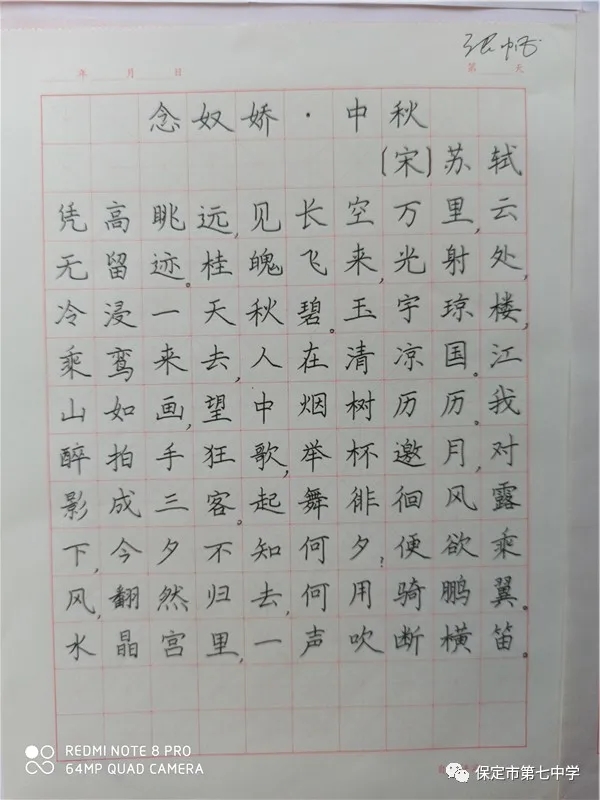 年 月 日
第 天
念奴娇·中秋
[宋]苏轼
凭高眺远,见长空万里,云
无留迹。桂魄飞来,光射处,
冷浸一天秋碧。玉宇琼楼,
乘鸾来去,人在清凉国。江
山如画,望中烟树历历。我
醉拍手狂歌,举杯邀月,对
影成三客。起舞徘徊风露
下,今夕不知何夕?便欲乘
风,翻然归去,何用骑鹏翼。
水晶宫里,一声吹断横笛。
REDMI NOTE 8 PRO
64MP QUAD CAMERA
保定市第七中学